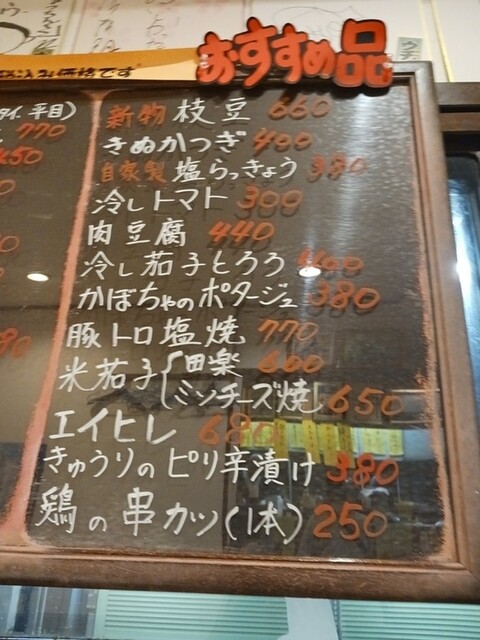 おすすめ品
込み価格です
タイ.平目)
770
新物 枝豆 660
きぬかつぎ 400
自家製 塩らっきょう 380
冷しトマト 300
肉豆腐 440
冷し茄子とろろ 400
かぼちゃのポタージュ 380
豚トロ塩焼 770
米茄子{田楽 600
ミンチーズ焼 650
エイヒレ 680
きゅうりのピリ辛漬け 380
鶏の串カツ(1本) 250